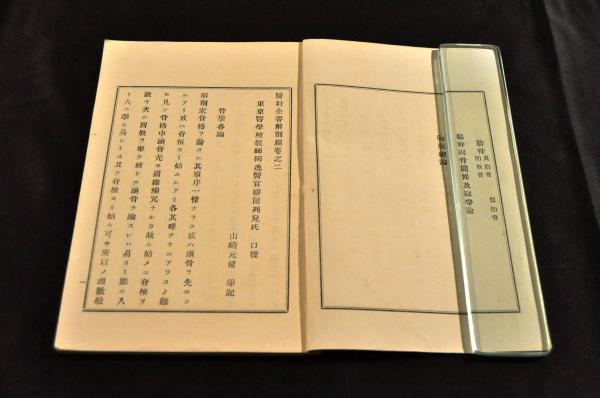 肋骨
軀幹諸骨關節及靱帶論
胸廓總論
醫科全書解剖篇卷之二
東京醫學校敎師獨逸醫官繆爾列兒氏 口授
山崎元脩 筆記
骨學各論
解剖家骨格ヲ論スル其順序一樣ナラス或ハ頭骨ヲ先ニス
ルアリ或ハ脊椎ヨリ始ムルアリ各其理ナキニアラスト雖
モ凡ソ骨格中頭骨尤モ錯雜煩冗ナルカ故ニ始メニ脊椎ヲ
說キ次ニ四肢ヲ擧ケ終リニ頭骨ヲ論スレハ易ヨリ難ニ入
リ大ニ學ヒ易シトス且ツ脊椎ヨリ始ム可キ所以ノ理數般
一